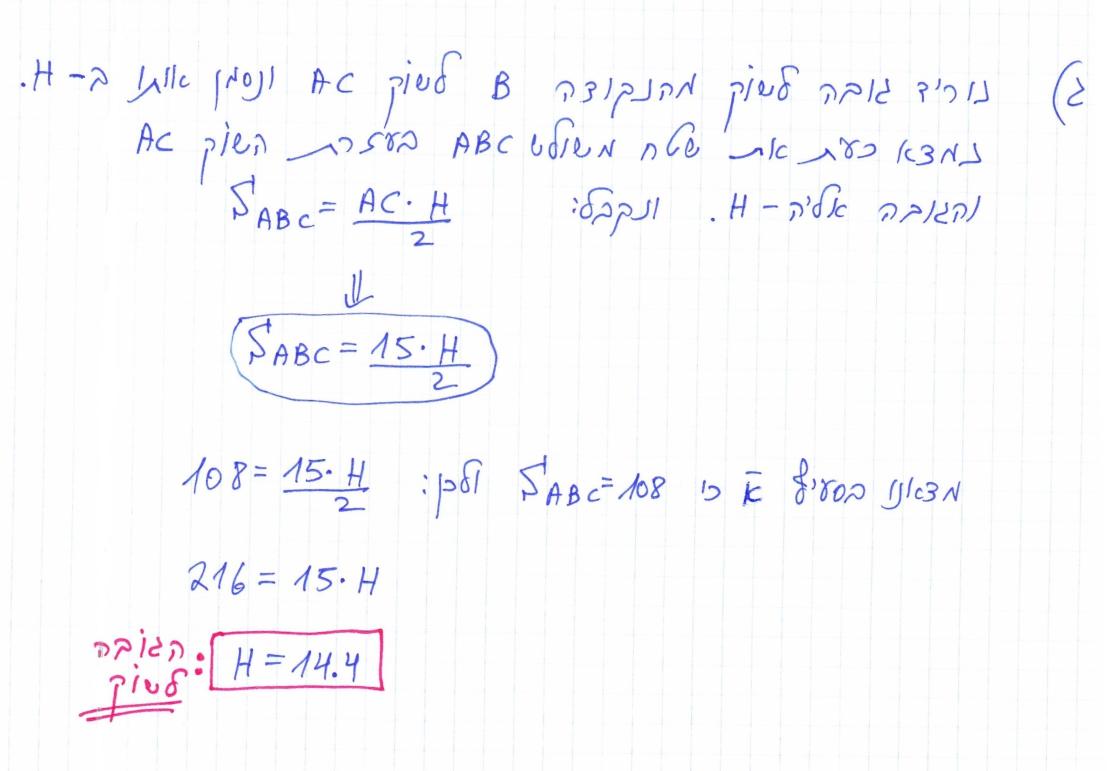 ג) נוריד גובה לשוק מהנקודה B לשוק AC ונסמן אותו ב-H.
נמצא כעת את שטח משולש ABC בעזרת השוק AC
והגובה אליה-H. ונקבל: S_ABC = AC·H/2
⇓
S_ABC = 15·H/2
מצאנו בסעיף א כי S_ABC = 108 ולכן: 108 = 15·H/2
216 = 15·H
הגובה לשוק: H = 14.4